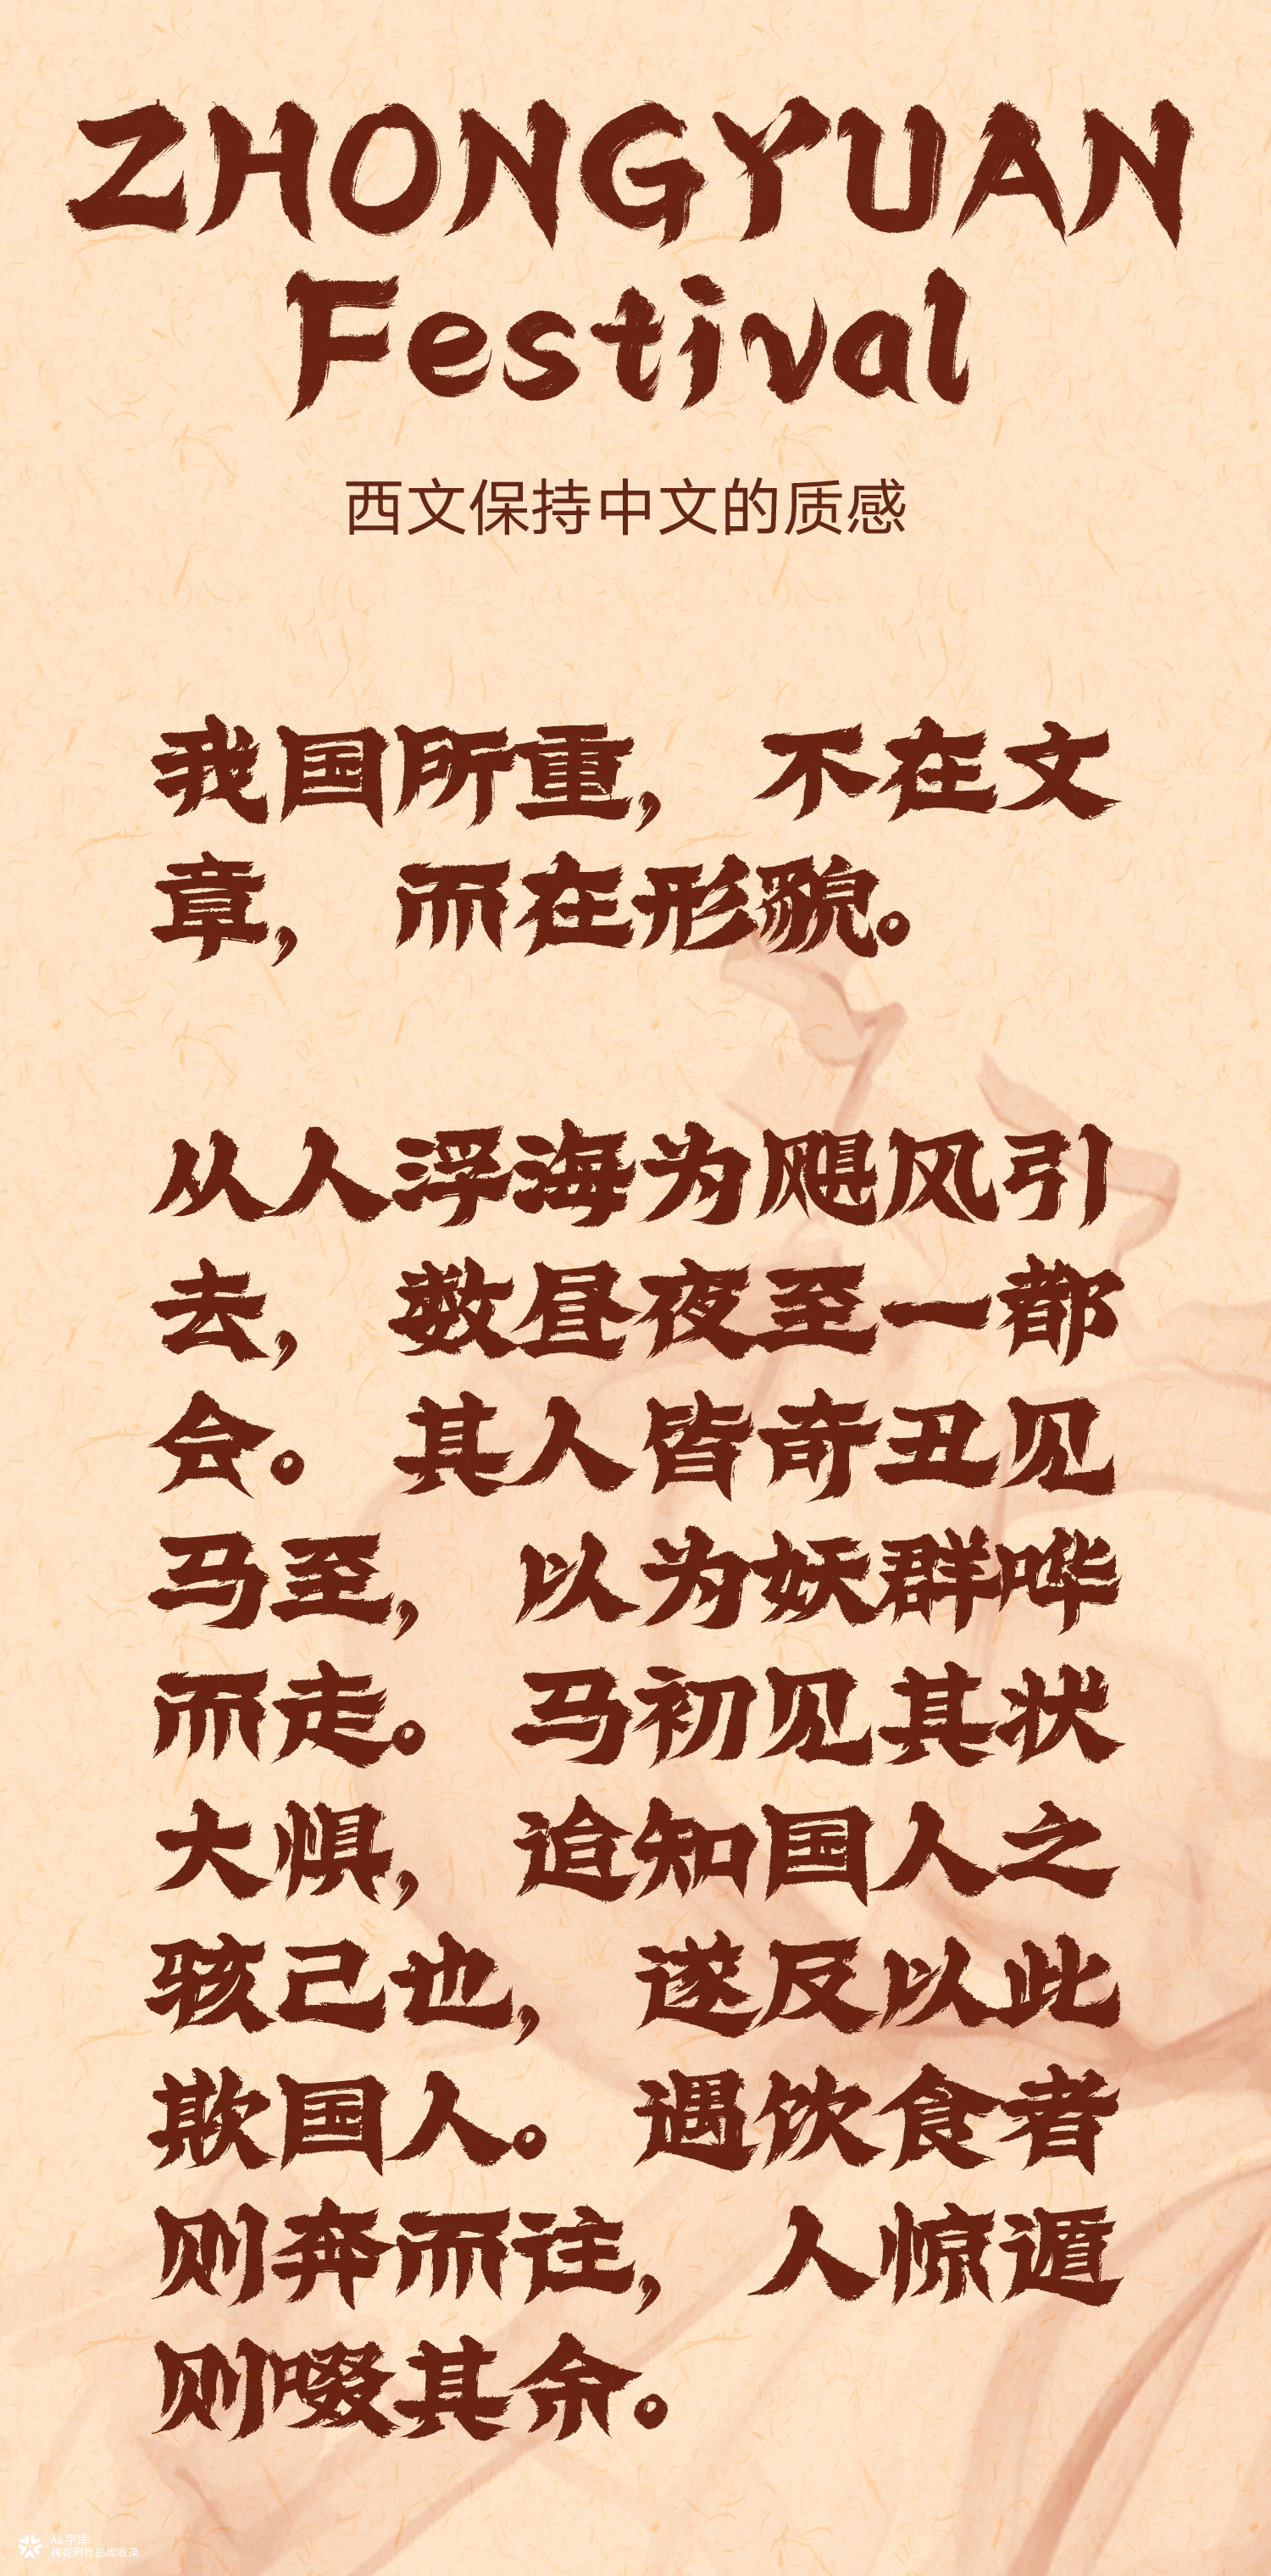 ZHONGYUAN
Festival
西文保持中文的质感
我国所重，不在文
章，而在形貌。
从人浮海为飓风引
去，数昼夜至一都
会。其人皆奇丑见
马至，以为妖群哗
而走。马初见其状
大惧，迨知国人之
骇己也，遂反以此
欺国人。遇饮食者
则奔而往，人惊遁
则啜其余。
Aa字库
梅花网作品库收录